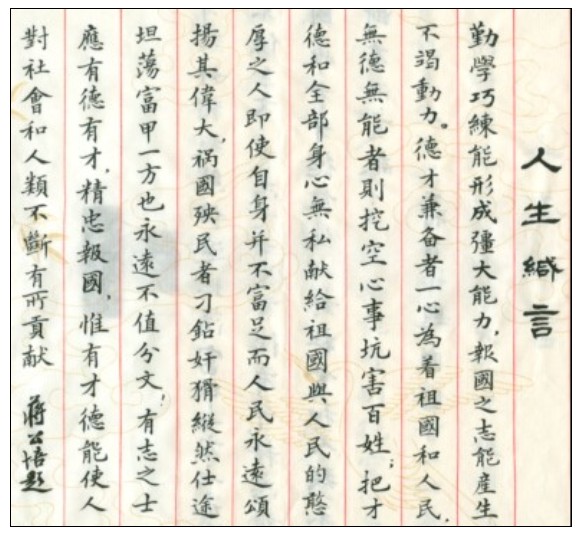 人生緘言
勤學巧練能形成彊大能力,報國之志能產生
不竭動力。德才兼备者一心為着祖國和人民,
無德無能者則挖空心事坑害百姓;把才
德和全部身心無私献給祖國與人民的憨
厚之人即使自身并不富足而人民永遠頌
揚其偉大,祸國殃民者刁鉆奸猾縱然仕途
坦蕩富甲一方也永遠不值分文,有志之士
應有德有才,精忠報國,惟有才德能使人
對社會和人類不斷有所貢献 蔣公悟題